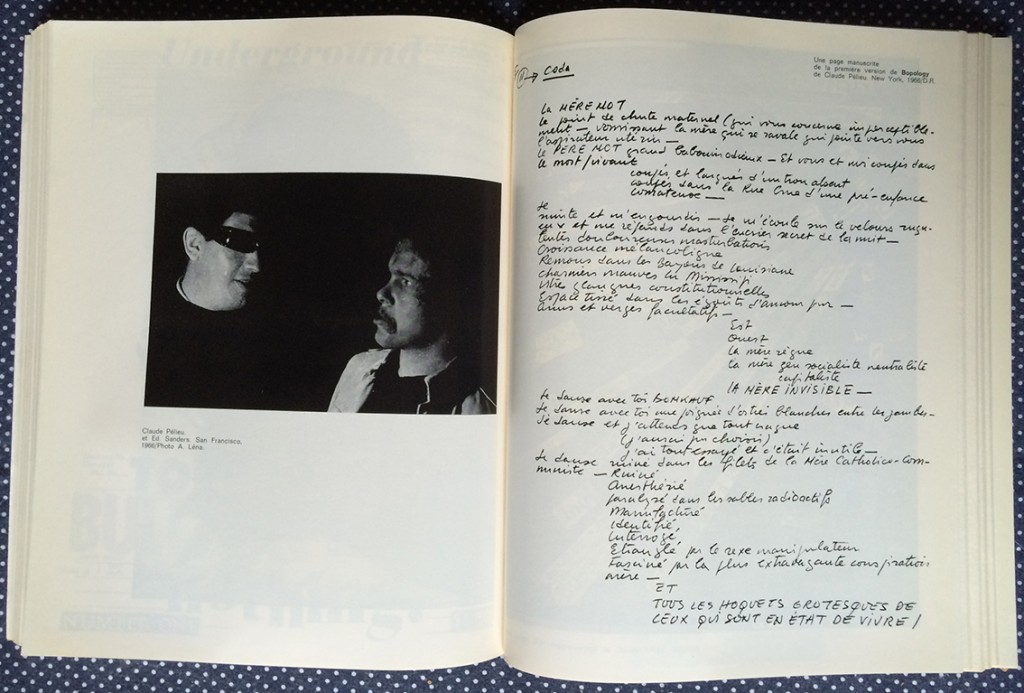 Claude Pélieu,
et Ed Sanders, San Francisco,
1966/Photo A. Léna.
Une page manuscrite
de la première version de Bopology
de Claude Pélieu, New York, 1966/D.R.
Coda
La MÈRE MOT
le point de chute maternel (qui vous concerne imperceptible-
ment — vomissant la mère qui se ravale qui pointe vers vous
l'aspirateur utérin —
le PÈRE MOT grand babouin odieux — Et vous et moi coupés dans
le mort/vivant
coupés et largués d'un tron absent
coupés dans la Rue d'une pré-enfance
comateuse —
Je
suinte et m'engourdis — Je m'écoule sur le velours
et me répands dans l'encrier secret de la nuit —
lentes douloureuses masturbations
Croissance mélancolique
Remous dans les Bayous de Louisiane
charniers mauves du Mississipi
glauques constitutionnelles
tissé dans les égouts d'amour pur —
Anus et verges facultatifs —
Est
Ouest
La mère règne
la mère socialiste neutraliste
capitaliste
LA MÈRE INVISIBLE —
Je danse avec toi BOMKAUF
Je danse avec toi une poignée d'orties blanches entre les jambes-
Je danse et j'attends que tout craque
(j'aurais pu choisir)
j'ai tout essayé et c'était inutile —
Je danse ruiné dans les filets de la Mère Catholico-Com-
muniste — Ruiné
Anesthésié
paralysé dans les sables radioactifs
Manufacturé
identifié,
interrogé,
Etranglé par le sexe manipulateur
Fasciné par la plus extravagante conspiration
mère —
ET
TOUS LES HOQUETS GROTESQUES DE
CEUX QUI SONT EN ÉTAT DE VIVRE /